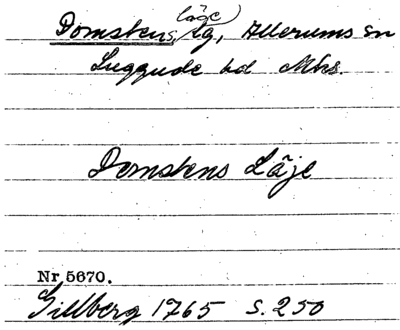 läge
Domstens lg, Allerums sn
Luggude hd Mhs.
Domstens Läje
Nr 5670.
Gillberg 1765 S. 250